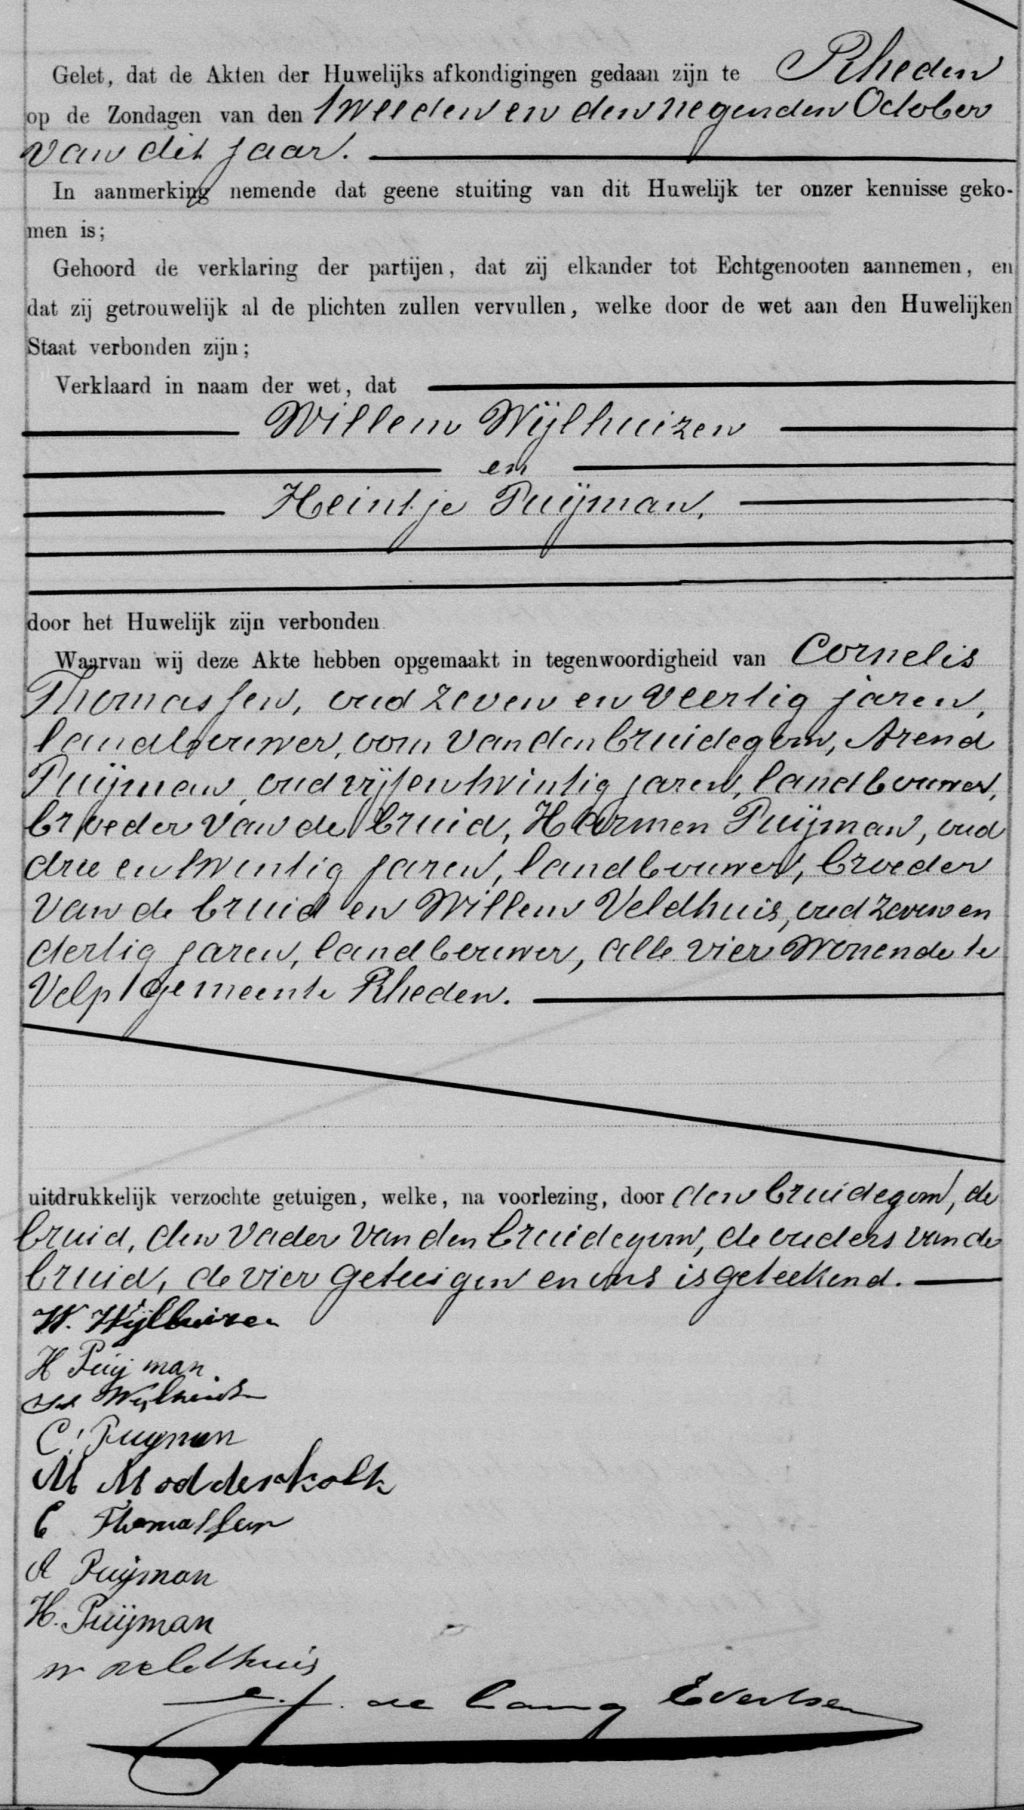 Gelet, dat de Akten der Huwelijks afkondigingen gedaan zijn te Rheden
op de Zondagen van den tweeden en den negenden October
van dit jaar.
In aanmerking nemende dat geene stuiting van dit Huwelijk ter onzer kennisse geko-
men is;
Gehoord de verklaring der partijen, dat zij elkander tot Echtgenooten aannemen, en
dat zij getrouwelijk al de plichten zullen vervullen, welke door de wet aan den Huwelijken
Staat verbonden zijn;
Verklaard in naam der wet, dat
Willem Wijlhuizen
en
Heintje Puijman,
door het Huwelijk zijn verbonden
Waarvan wij deze Akte hebben opgemaakt in tegenwoordigheid van Cornelis
Thomassen, oud zeven en veertig jaren,
landbouwer, oom van den bruidegom, Arend
Puijman, oud vijfentwintig jaren, landbouwer,
broeder van de bruid, Harmen Puijman, oud
drie en twintig jaren, landbouwer, broeder
van de bruid en Willem Veldhuis, oud zeven en
dertig jaren, landbouwer, alle vier wonende te
Velp gemeente Rheden.
uitdrukkelijk verzochte getuigen, welke, na voorlezing, door den bruidegom, de
bruid, den vader van den bruidegom, de ouders van de
bruid, de vier getuigen en ons is geteekend.
W. Wijlhuizen
H Puijman.
Wijlhuizen
C. Puijman
M Modderkolk
C Thomassen
A Puijman
H. Puijman
W Veldhuis
de Lang Evertsen